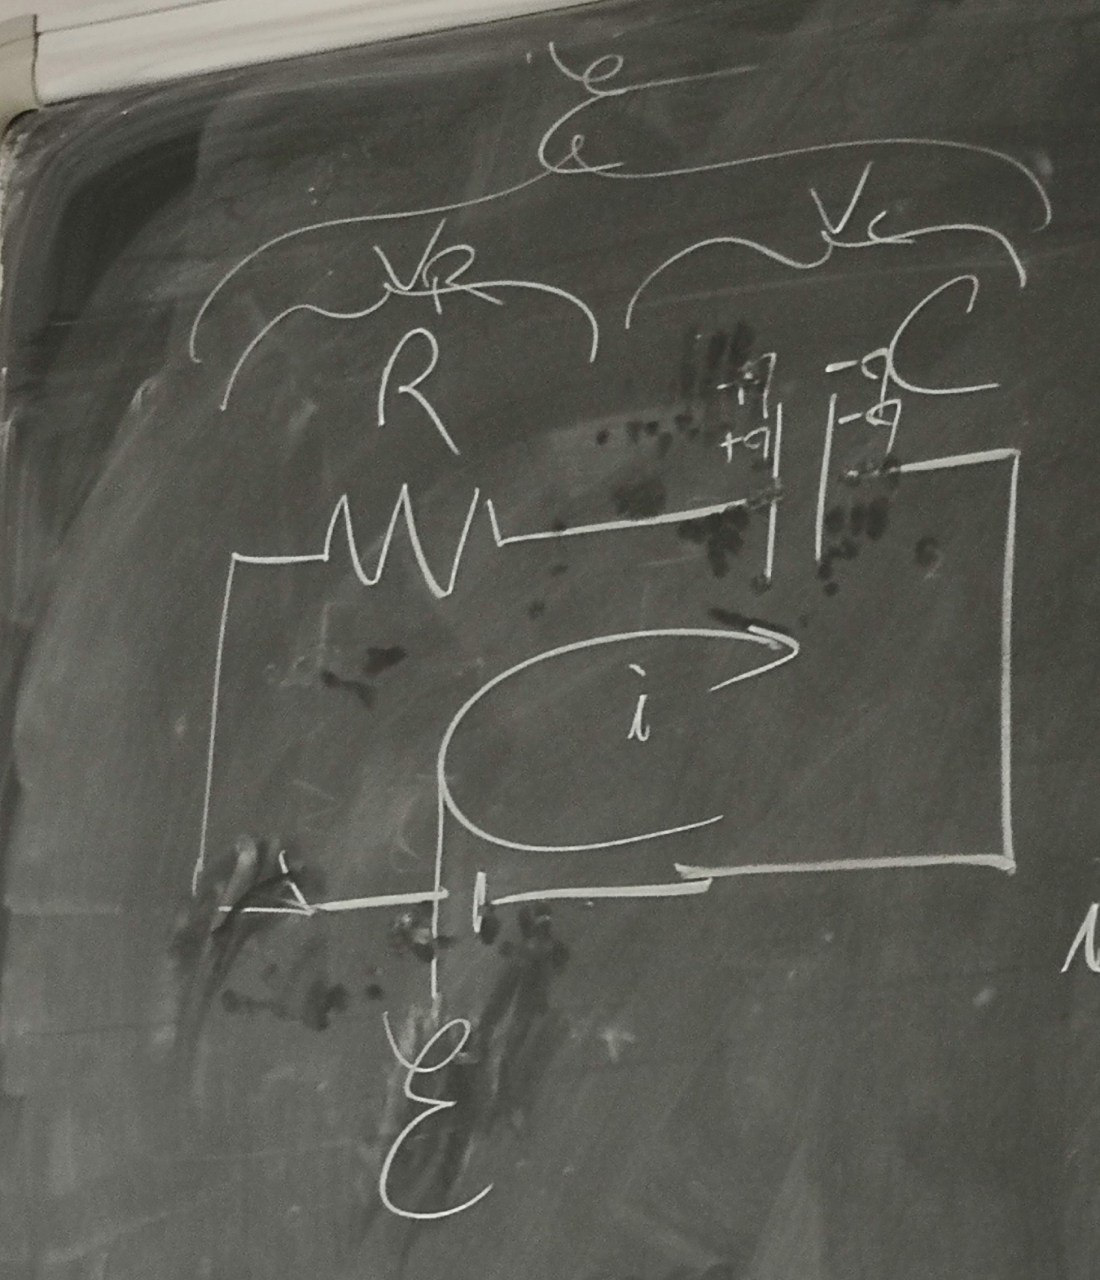 ℰ
V_R
V_C
R
C
+q
-q
+q
-q
i
ℰ